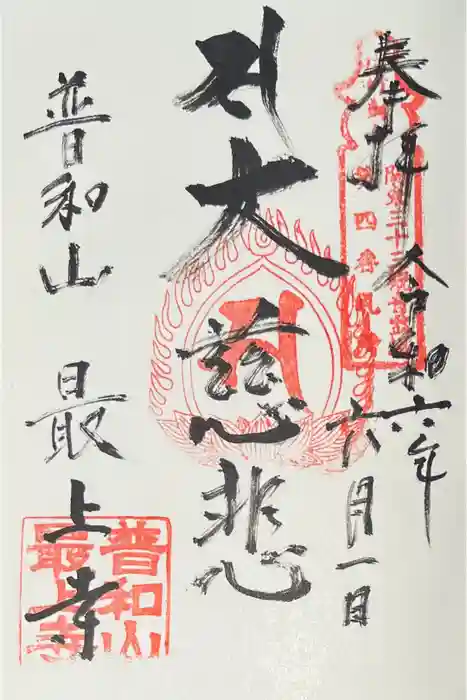 奉拝 令和六年
六月一日
大慈悲
普和山 最上寺
普和山
最上寺